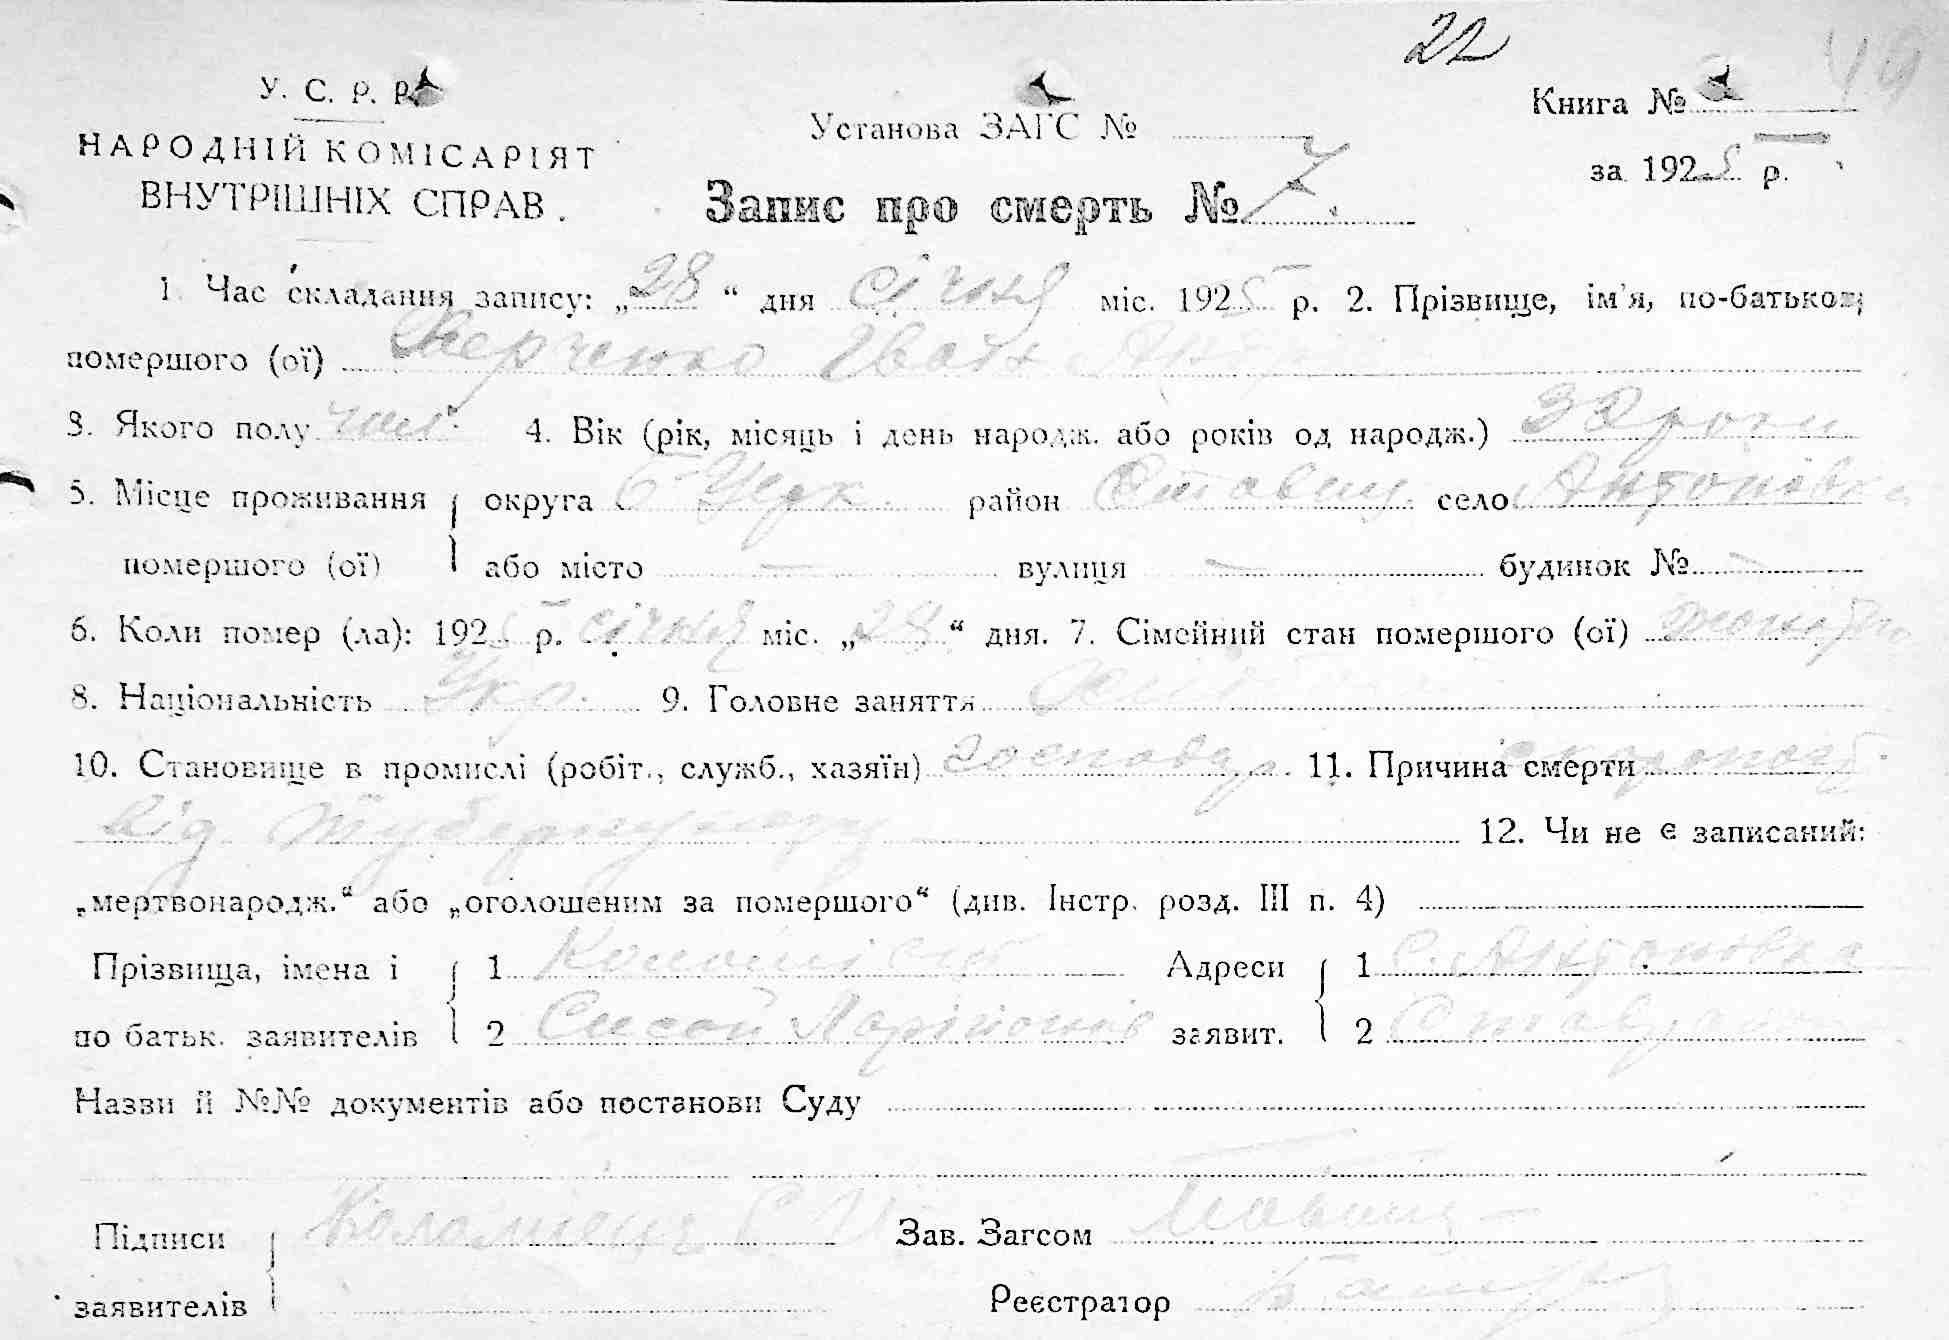 22
У. С. Р. Р.
НАРОДНІЙ КОМІСАРІЯТ
ВНУТРІШНІХ СПРАВ.
Установа ЗАГС №
Книга №
за 1925 р.
Запис про смерть № 7.
1. Час складання запису: „28“ дня січня міс. 1925 р. 2. Прізвище, ім'я, по-батькові
помершого (ої) Іван
3. Якого полу чол. 4. Вік (рік, місяць і день народж. або років од народж.) 32 роки
5. Місце проживання округа Б Церк. район Ставищ. село Антонівка
помершого (ої) або місто — вулиця — будинок № —
6. Коли помер (ла): 1925 р. січня міс. „28“ дня. 7. Сімейний стан помершого (ої)
8. Національність Укр. 9. Головне заняття
10. Становище в промислі (робіт., служб., хазяїн) господар. 11. Причина смерти
від туберкульозу 12. Чи не є записаний:
„мертвонародж.“ або „оголошеним за помершого“ (див. Інстр. розд. III п. 4)
Прізвища, імена і 1 Адреси 1 с. Антоновка
по батьк. заявителів 2 Сисой Ларіонів заявит. 2
Назви й №№ документів або постанови Суду
Підписи Зав. Загсом
заявителів Реєстратор